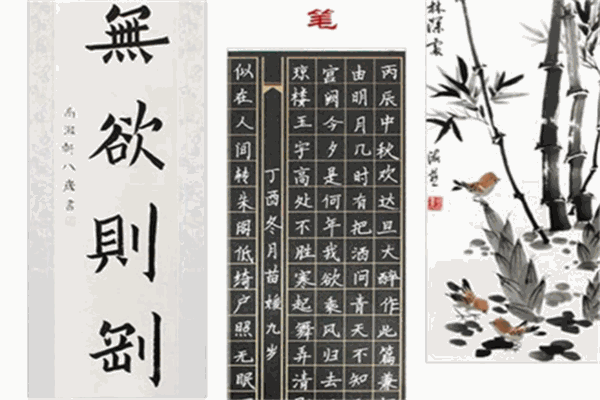 笔
無欲則剛
八歲書
丙辰中秋欢达旦大醉作此篇兼
由明月几时有把酒问青天不知
宫阙今夕是何年我欲乘风归去
琼楼玉宇高处不胜寒起舞弄清
似在人间转朱阁低绮户照无眠
丁酉冬月苗九岁
林深處